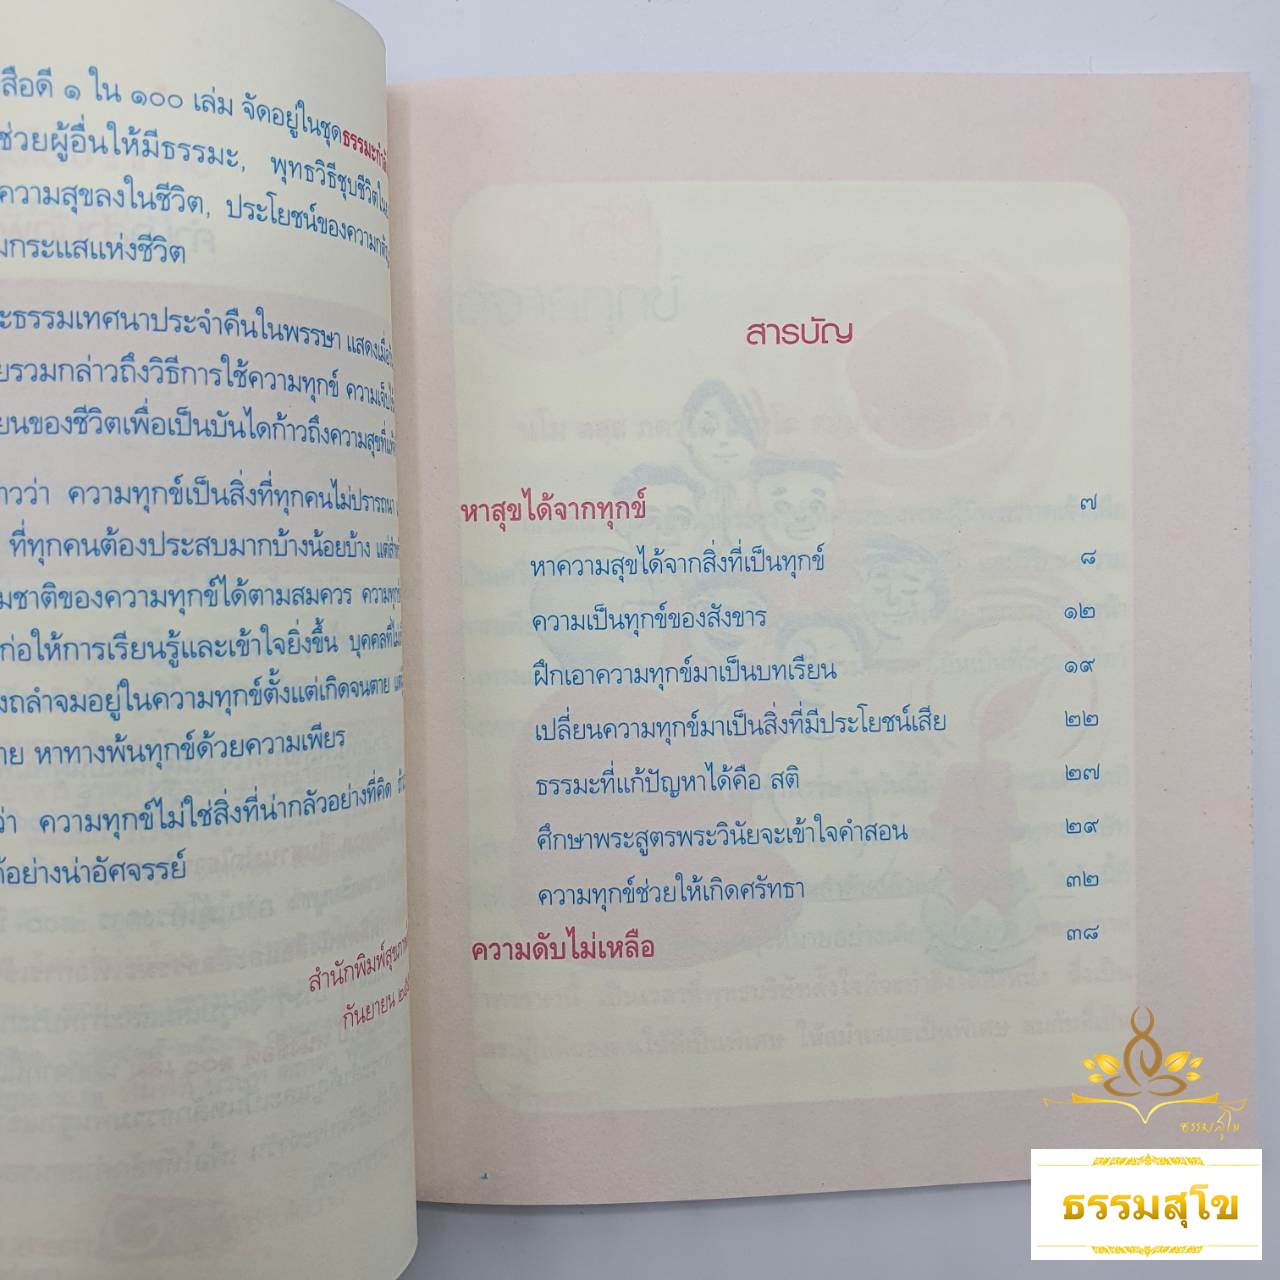 สือดี ๑ ใน ๑๐๐ เล่ม จัดอยู่ในชุดธรรมะ
ช่วยผู้อื่นให้มีธรรมะ, พุทธวิธีชุบชีวิต
ความสุขลงในชีวิต, ประโยชน์ของความ
กระแสแห่งชีวิต
ะธรรมเทศนาประจำคืนในพรรษา แสดงเมื่อ
ยรวมกล่าวถึงวิธีการใช้ความทุกข์ ความเจ็บ
ยนของชีวิตเพื่อเป็นบันไดก้าวถึงความสุขที่
าวว่า ความทุกข์เป็นสิ่งที่ทุกคนไม่ปรารถนา
ที่ทุกคนต้องประสบมากบ้างน้อยบ้าง
มชาติของความทุกข์ได้ตามสมควร ความทุกข์
ก่อให้การเรียนรู้และเข้าใจยิ่งขึ้น บุคคลที่
งถลำจมอยู่ในความทุกข์ตั้งแต่เกิดจนตาย
าย หาทางพ้นทุกข์ด้วยความเพียร
ว่า ความทุกข์ไม่ใช่สิ่งที่น่ากลัวอย่างที่คิด
อย่างน่าอัศจรรย์
สำนักพิมพ์สุขภาพ
กันยายน
สารบัญ
หาสุขได้จากทุกข์ ๗
หาความสุขได้จากสิ่งที่เป็นทุกข์ ๘
ความเป็นทุกข์ของสังขาร ๑๒
ฝึกเอาความทุกข์มาเป็นบทเรียน ๑๙
เปลี่ยนความทุกข์มาเป็นสิ่งที่มีประโยชน์เสีย ๒๒
ธรรมะที่แก้ปัญหาได้คือ สติ ๒๗
ศึกษาพระสูตรพระวินัยจะเข้าใจคำสอน ๒๙
ความทุกข์ช่วยให้เกิดศรัทธา ๓๒
ความดับไม่เหลือ ๓๘
ธรรมสุโข
ธรรมสุโข